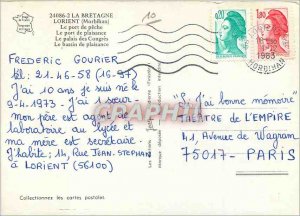 24086-2 LA BRETAGNE
LORIENT (Morbihan)
Le port de pêche
Le port de plaisance
Le palais des Congrès
Le bassin de plaisance
10
0,20
1,80
1983
MORBIHAN
FREDERIC GOURIER
tél: 21.46-58 (16-97)
J'ai 10 ans je suis né le
9-4-1973 - J'ai 1 sœur -
mon père est agent de
laboratoire au lycée et
ma mère est secrétaire.
J'habite: 14, RUE JEAN-STEPHAN
à LORIENT (56100)
"Si j'ai bonne mémoire"
THÉATRE DE L'EMPIRE
41 Avenue de Wagram
75017 - PARIS
Collectionnez les cartes postales